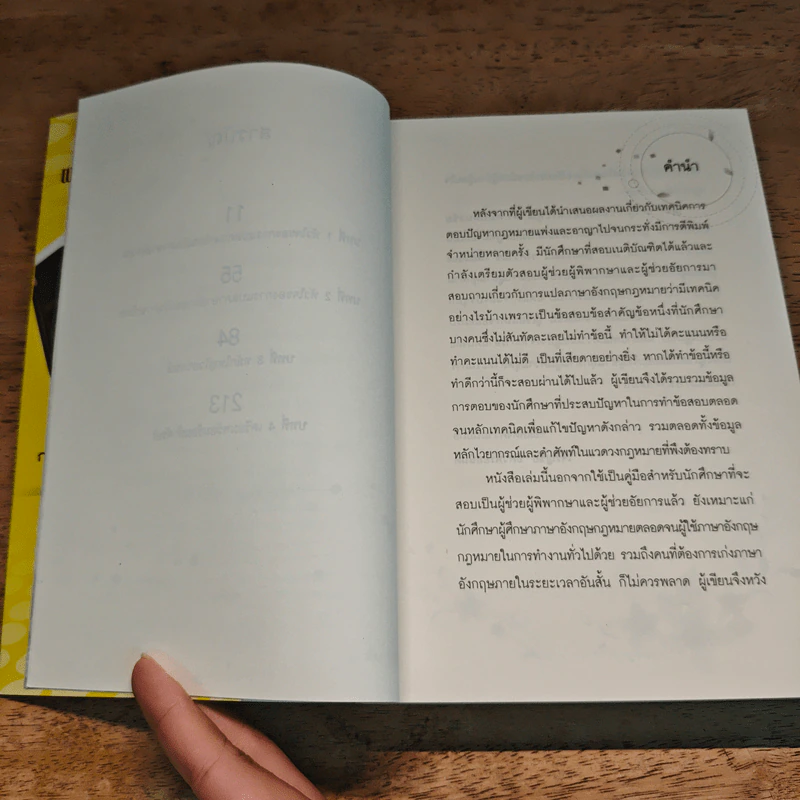 คำนำ
หลังจากที่ผู้เขียนได้นำเสนอผลงานเกี่ยวกับเทคนิคการ
ตอบปัญหากฎหมายแพ่งและอาญาไปจนกระทั่งมีการตีพิมพ์
จำหน่ายหลายครั้ง มีนักศึกษาที่สอบเนติบัณฑิตได้แล้วและ
กำลังเตรียมตัวสอบผู้ช่วยผู้พิพากษาและผู้ช่วยอัยการมา
สอบถามเกี่ยวกับการแปลภาษาอังกฤษกฎหมายว่ามีเทคนิค
อย่างไรบ้างเพราะเป็นข้อสอบข้อสำคัญข้อหนึ่งที่นักศึกษา
บางคนซึ่งไม่สันทัดละเลยไม่ทำข้อนี้ ทำให้ไม่ได้คะแนนหรือ
ทำคะแนนได้ไม่ดี เป็นที่เสียดายอย่างยิ่ง หากได้ทำข้อนี้หรือ
ทำดีกว่านี้ก็จะสอบผ่านได้ไปแล้ว ผู้เขียนจึงได้รวบรวมข้อมูล
การตอบของนักศึกษาที่ประสบปัญหาในการทำข้อสอบตลอด
จนหลักเทคนิคเพื่อแก้ไขปัญหาดังกล่าว รวมตลอดทั้งข้อมูล
หลักไวยากรณ์และคำศัพท์ในแวดวงกฎหมายที่พึงต้องทราบ
หนังสือเล่มนี้นอกจากใช้เป็นคู่มือสำหรับนักศึกษาที่จะ
สอบเป็นผู้ช่วยผู้พิพากษาและผู้ช่วยอัยการแล้ว ยังเหมาะแก่
นักศึกษาผู้ศึกษาภาษาอังกฤษกฎหมายตลอดจนผู้ใช้ภาษาอังกฤษ
กฎหมายในการทำงานทั่วไปด้วย รวมถึงคนที่ต้องการเก่งภาษา
อังกฤษภายในระยะเวลาอันสั้น ก็ไม่ควรพลาด ผู้เขียนจึงหวัง